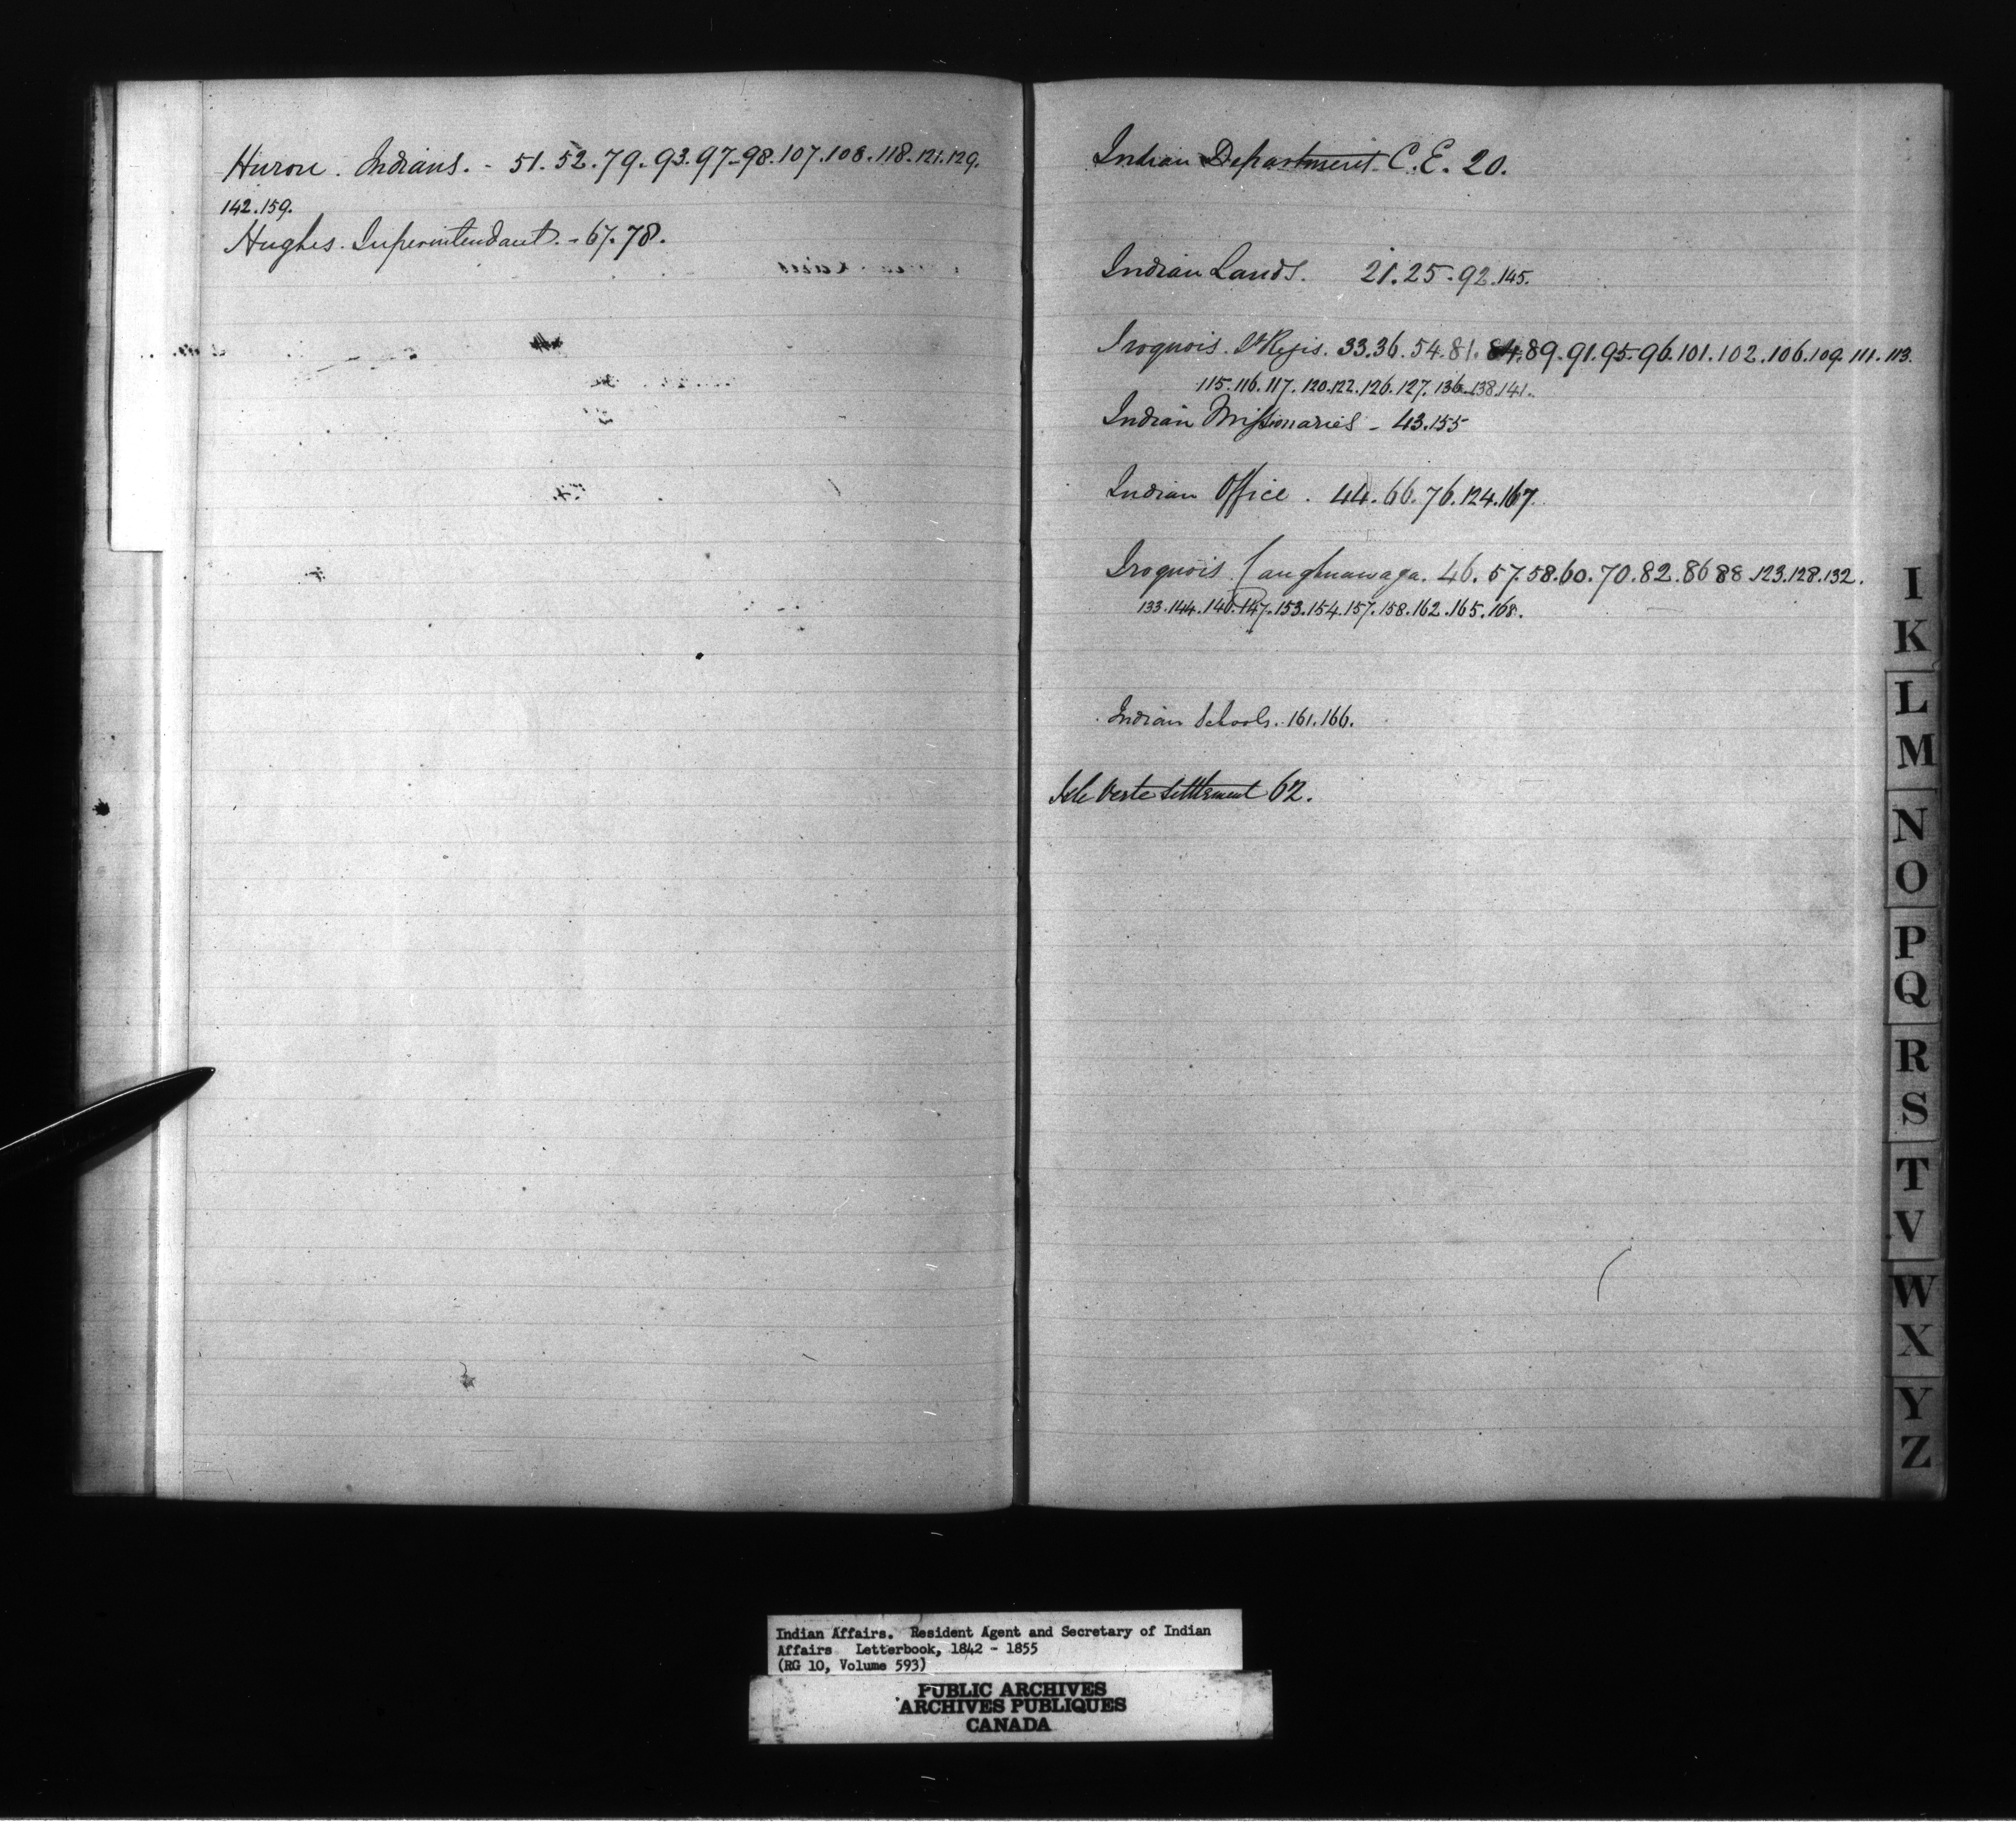 Huron. Indians. - 51. 52. 79. 93. 97-98. 107. 108. 118. 121. 129.
142. 159.
Hughes. Superintendant. - 67. 78.
Indian Department C. E. 20.
Indian Lands. 21. 25. 92. 145.
Iroquois. St Regis. 33. 36. 54. 81. 84. 89. 91. 95. 96. 101. 102. 106. 109. 111. 113.
115. 116. 117. 120. 122. 126. 127. 136. 138. 141.
Indian Missionaries - 43. 155
Indian Office. 44. 66. 76. 124. 167.
Iroquois Caughnawaga. 46. 57. 58. 60. 70. 82. 86 88. 123. 128. 132.
133. 144. 146. 147. 153. 154. 157. 158. 162. 165. 168.
Indian Schools. 161. 166.
Isle Verte Settlement 62.
I
K
L
M
N
O
P
Q
R
S
T
V
W
X
Y
Z
Indian Affairs. Resident Agent and Secretary of Indian
Affairs Letterbook, 1842 - 1855
(RG 10, Volume 593)
PUBLIC ARCHIVES
ARCHIVES PUBLIQUES
CANADA